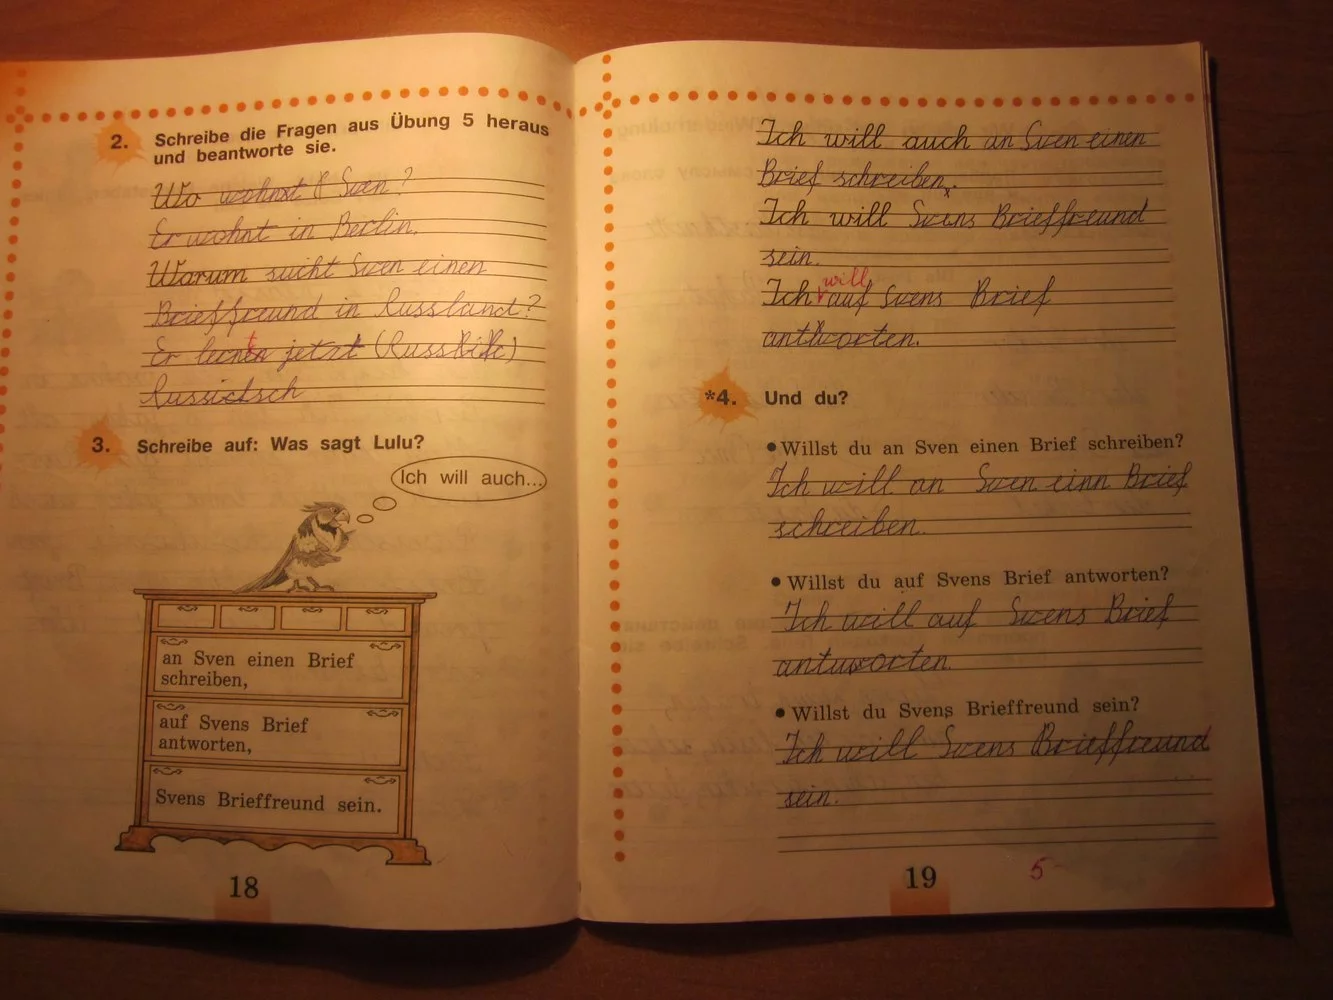 2. Schreibe die Fragen aus Übung 5 heraus
und beantworte sie.
Wo wohnst Sven?
Er wohnt in Berlin.
Warum sucht Sven einen
Brieffreund in Russland?
Er jetzt
3. Schreibe auf: Was sagt Lulu?
Ich will auch...
an Sven einen Brief
schreiben,
auf Svens Brief
antworten,
Svens Brieffreund sein.
18
Ich will auch an Sven einen
Brief schreiben.
Ich will Svens Brieffreund
sein.
will
Ich auf Svens Brief
antworten.
*4. Und du?
• Willst du an Sven einen Brief schreiben?
Ich will an Sven einn Brief
schreiben.
• Willst du auf Svens Brief antworten?
Ich will auf Svens Brief
antworten.
• Willst du Svens Brieffreund sein?
Ich will Svens Brieffreund
sein.
19
5